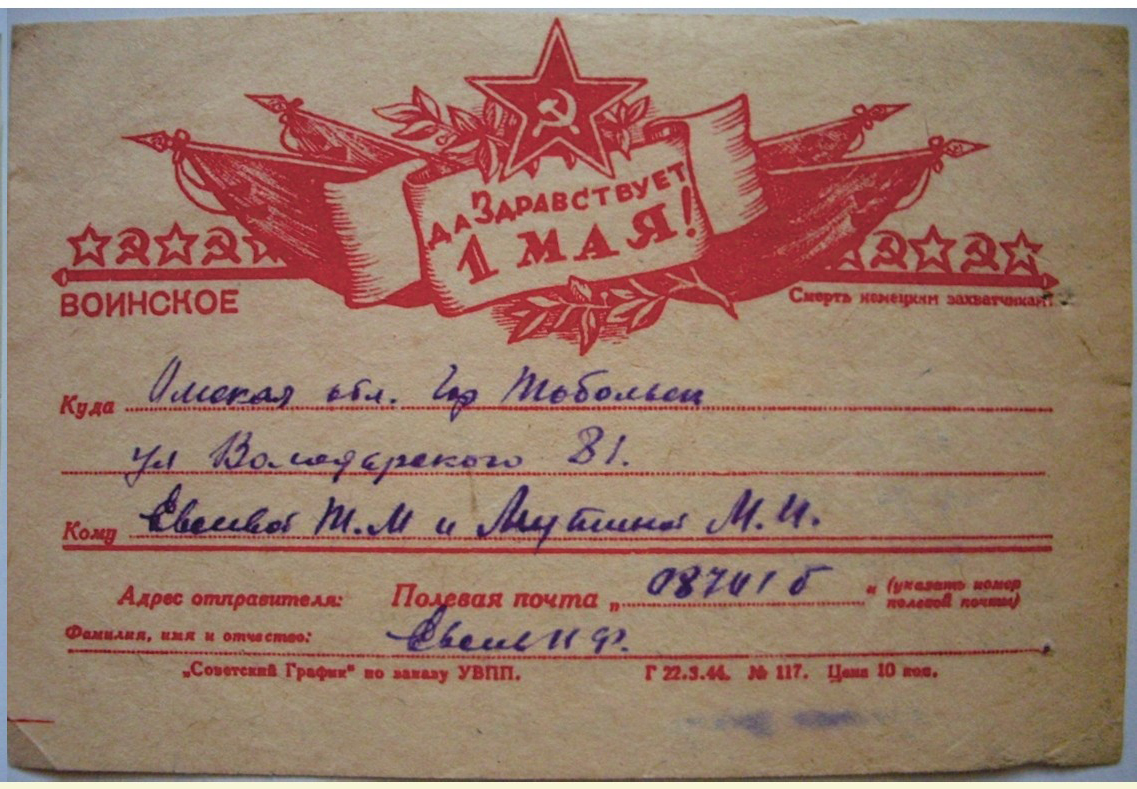 ДА ЗДРАВСТВУЕТ
1 МАЯ!
ВОИНСКОЕ
Смерть немецким захватчикам!
Куда Омская обл. гор Тобольск
ул Володарского 81.
Кому Евсевой Т.М и М.И.
Адрес отправителя: Полевая почта „ 08701 б " (указать номер
полевой почты)
Фамилия, имя и отчество: Н Ф.
„Советский График" по заказу УВПП. Г 22.3.44. № 117. Цена 10 коп.